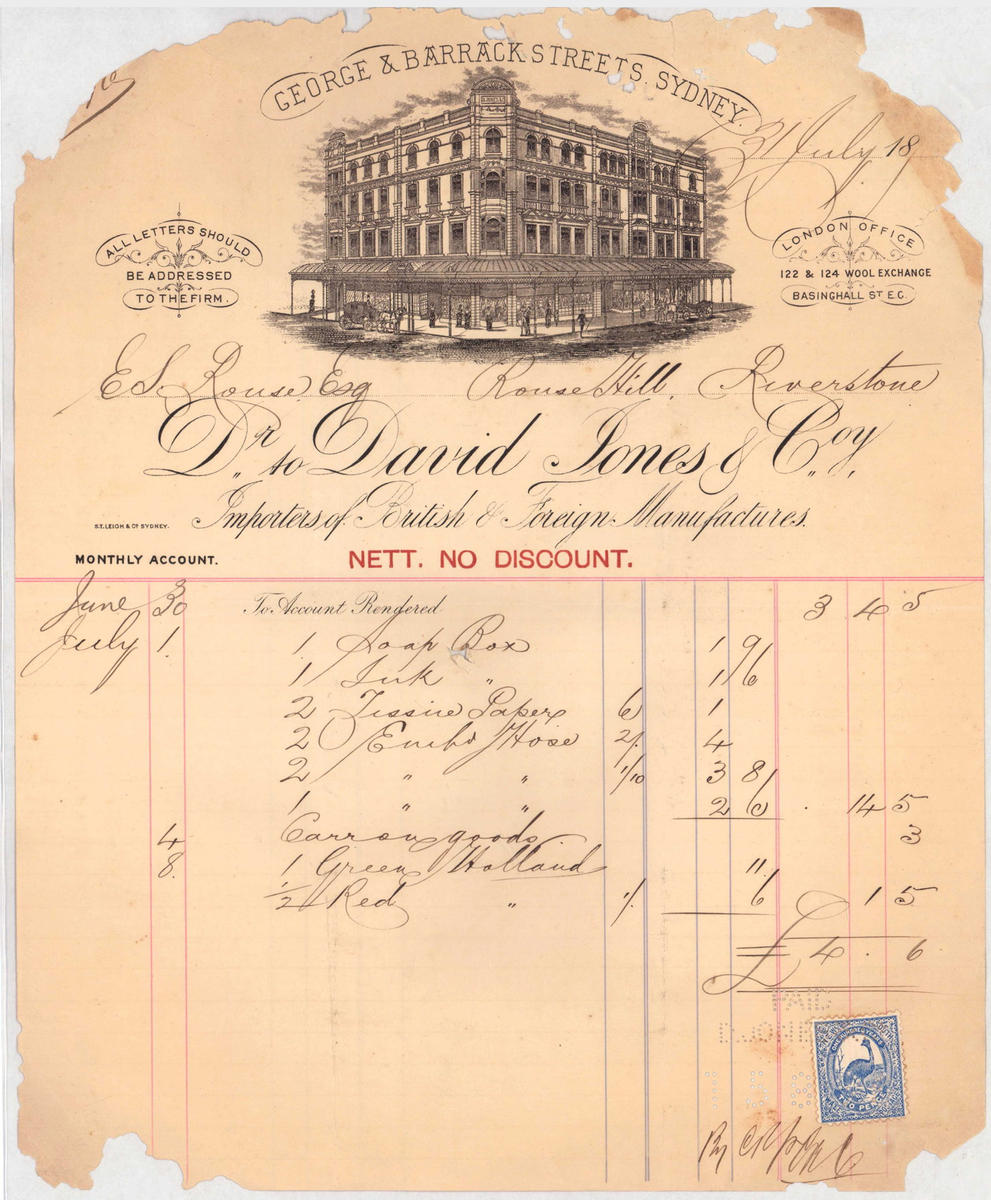 GEORGE & BARRACK STREETS. SYDNEY.
31 July 18
ALL LETTERS SHOULD
BE ADDRESSED
TO THE FIRM.
LONDON OFFICE
122 & 124 WOOL EXCHANGE
BASINGHALL ST E.C.
E S. Rouse Esq Rouse Hill, Riverstone
Dr. to David Jones & Coy,
Importers of British & Foreign Manufactures.
S.T. LEIGH & Co SYDNEY.
MONTHLY ACCOUNT. NETT. NO DISCOUNT.
June 30 To Account Rendered 3 4 5
July 1. 1 Soap Box 1 9
1 Ink " 1/6
2 Tissue Paper 6 1
2 Embd Hose 2/. 4
2 " " 1/10 3 8
1 " " 2 6 . 14 5
4 Carr on goods 3
8. 1 Green Holland 11
1/2 Red " 1/. 6 1 5
£ 4 . 6
PAID
D. JONE
188
ONE HUNDRED YEARS
TWO PENCE